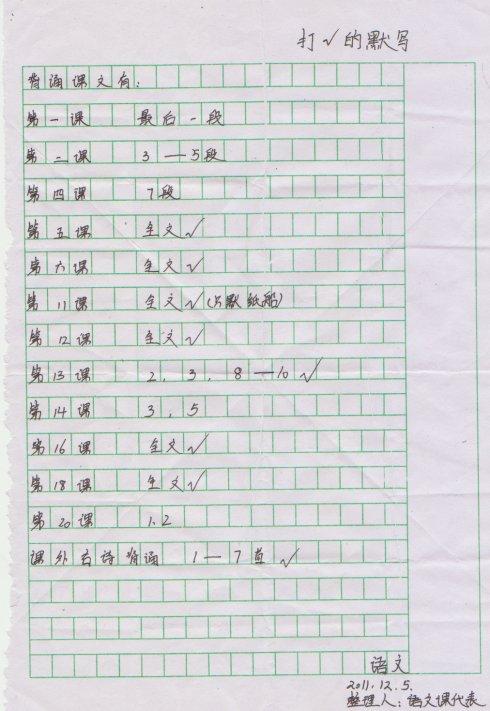 打√的默写
背诵课文有:
第一课 最后一段
第二课 3—5段
第四课 7段
第五课 全文√
第六课 全文√
第11课 全文√(只默纸船)
第12课 全文√
第13课 2, 3, 8—10 √
第14课 3, 5
第16课 全文√
第18课 全文√
第20课 1.2
课外古诗背诵 1—7首 √
语文
2011.12.5.
整理人:语文课代表